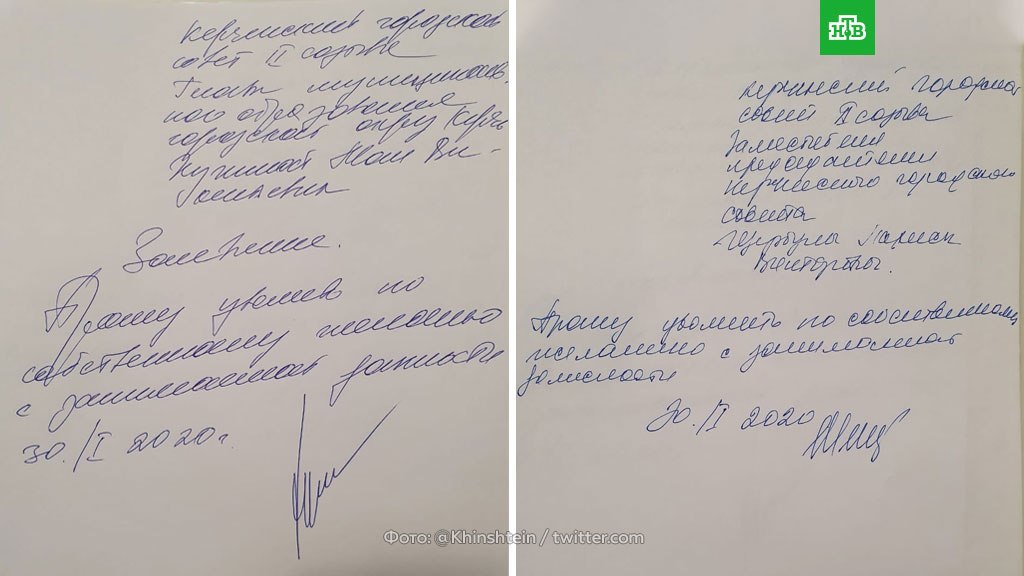 Керченский городской
совет II созыва
Главы муниципаль-
ного образования
городской округ Керчь
Николай Ви-
Заявление.
Прошу уволить по
собственному желанию
с занимаемой должности
30./I 2020г.
НТВ
Керченский городской
совет II созыва
Заместителя
председателя
Керченского городского
совета
Щербулы Ларисы
Викторовны.
Прошу уволить по собственному
желанию с занимаемой
должности
30./I 2020
Фото: @Khinshtein / twitter.com